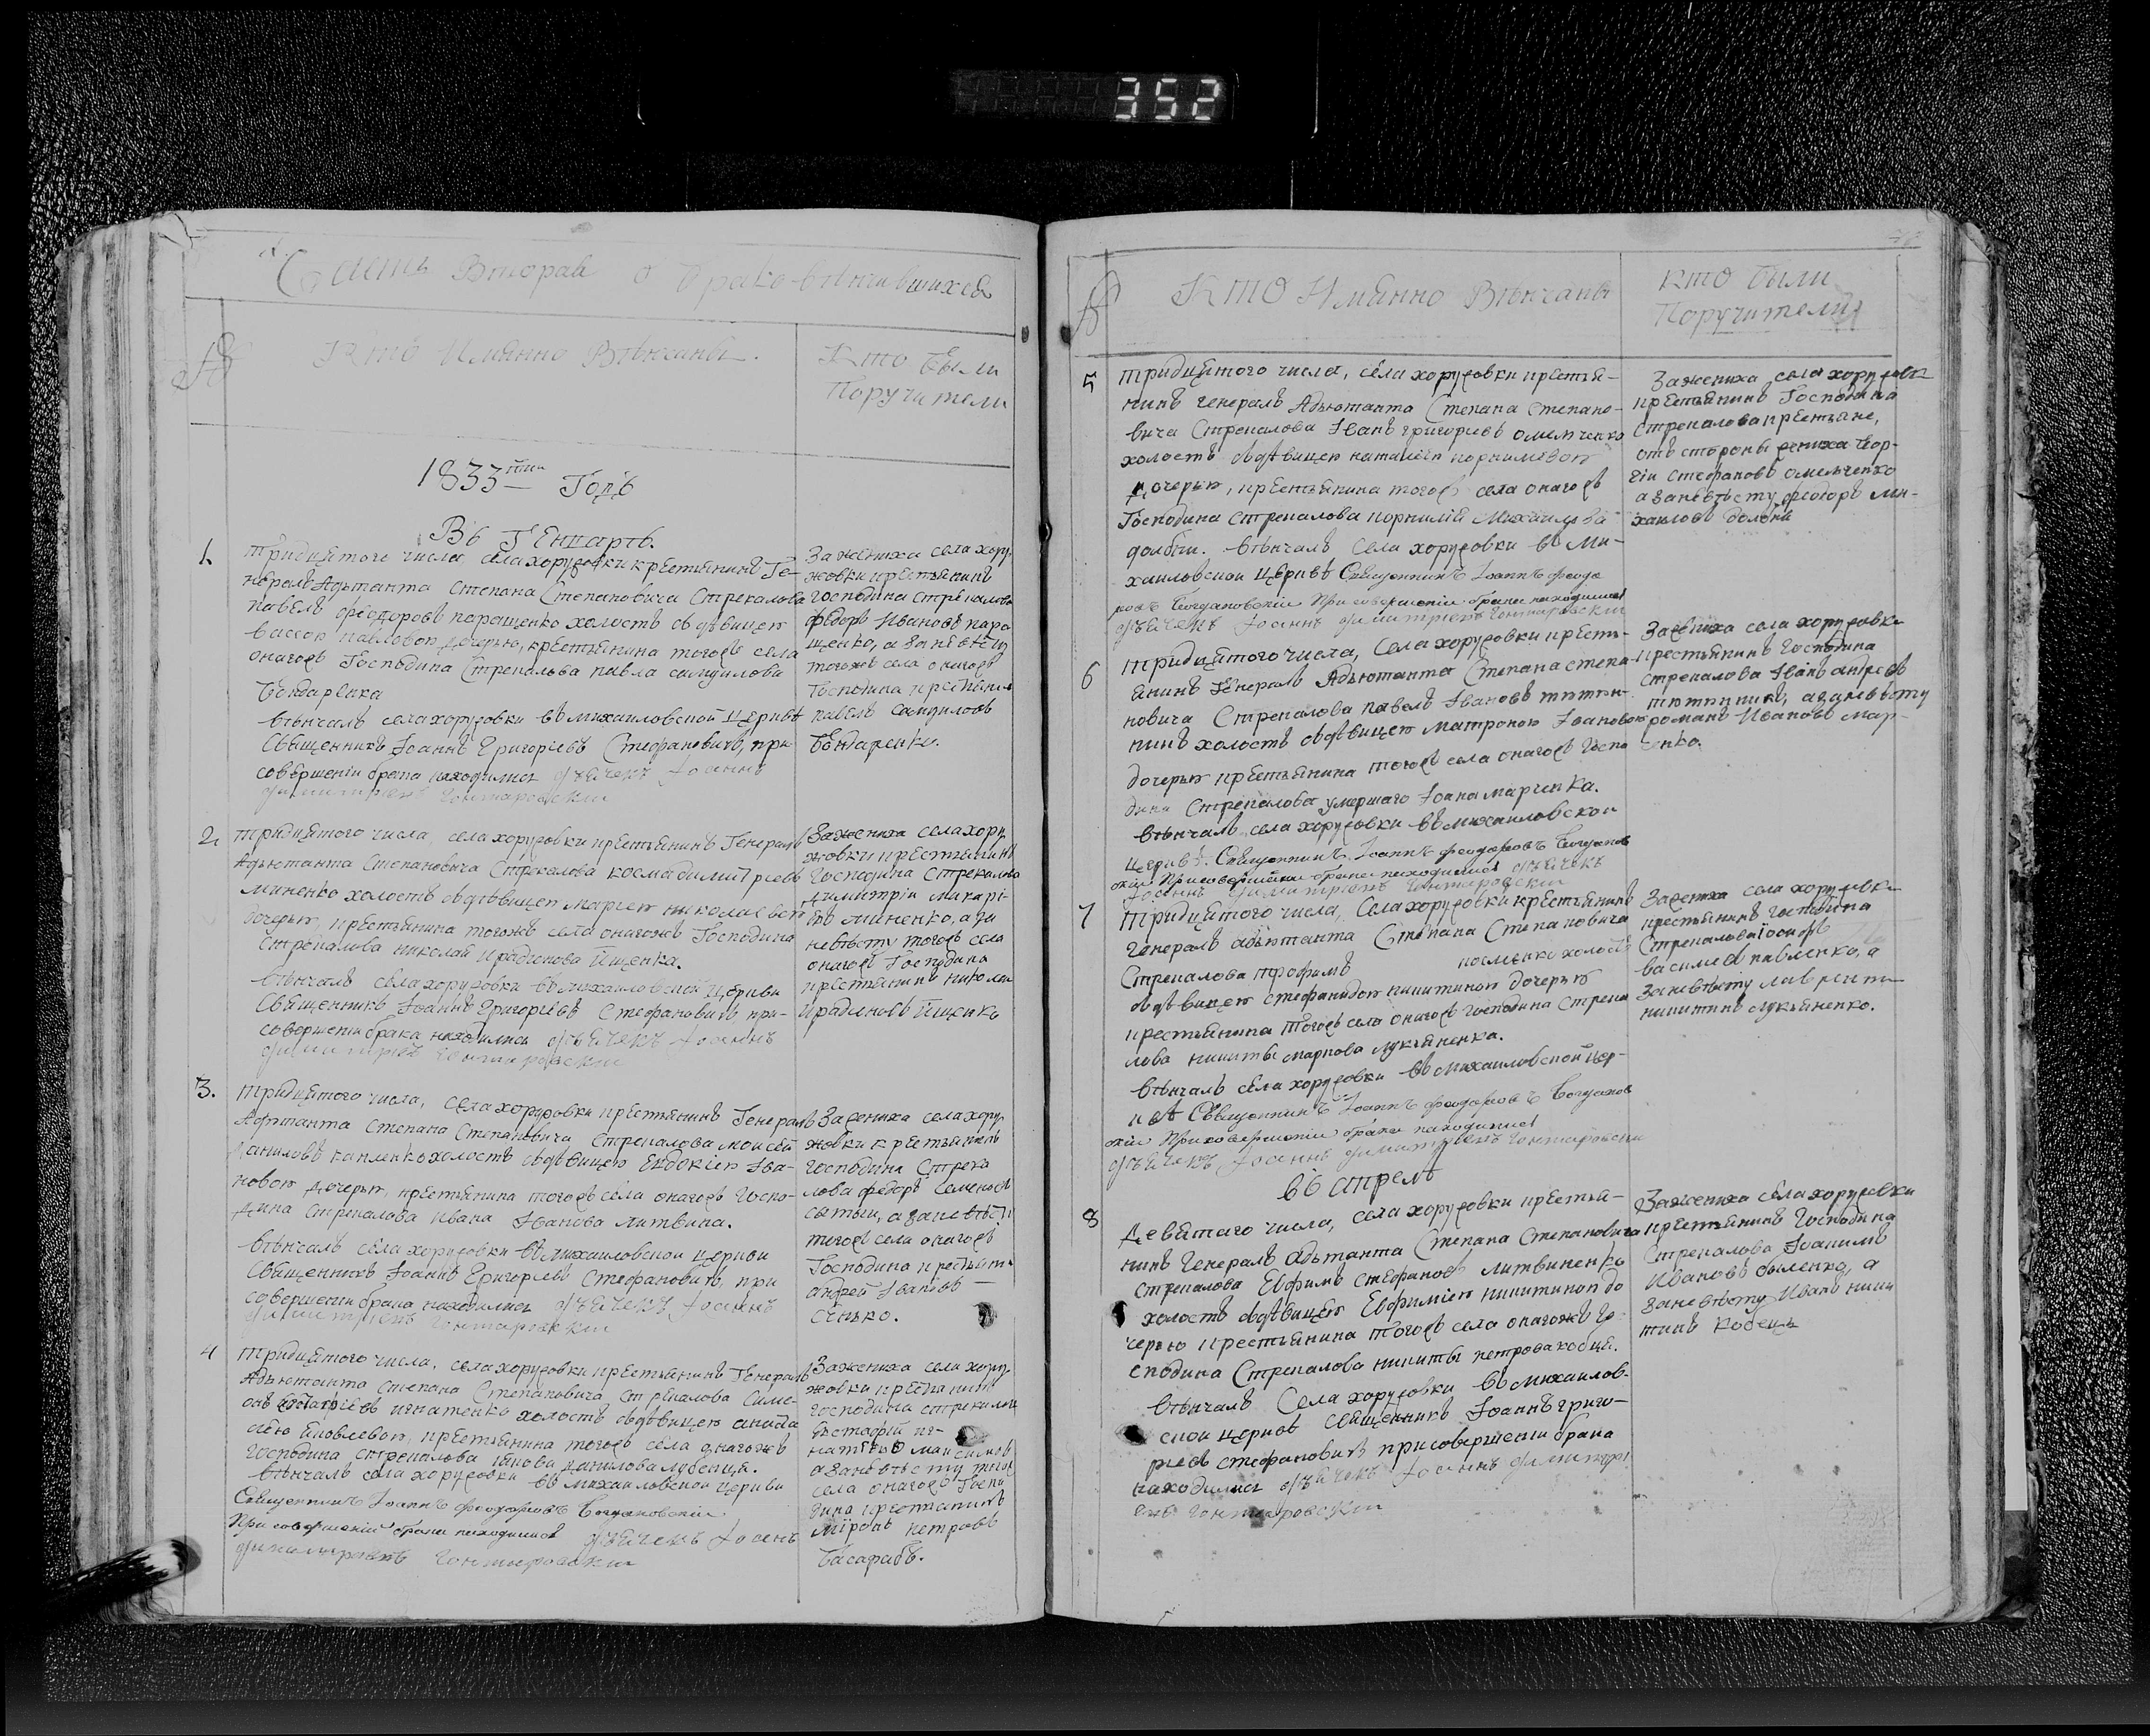 352
Часть Вторая о браковѣнчавшихся
Кто Имянно Вѣнчаны.
Кто были
Поручители
1833 года Годъ
Въ Генварѣ.
1.
тридцятого числа, села хоружовки крестьянинъ Ге-
нералъ Адьютанта Степана Степановича Стрекалова
павелъ феодоровъ паращенко холостъ съ дѣвицею
вассою павловою дочерью, крестьянина тогожъ села
онагожъ Господина Стрекалова павла самуилова
Бондаренка
вѣнчалъ села хоружовки въ михаиловской церквѣ
Священникъ Іоаннъ Григоріевъ Стефановичъ, при
совершеніи брака находились дьячекъ Іоаннъ
димитріевъ Гонтаровскій
За жениха села хору-
жовки крестьянинъ
господина Стрекалова
федоръ Ивановъ пара
щенко, а за невѣсту
тогожъ села онагожъ
Господина крестьянинъ
павелъ Самуиловъ
Бондаренко.
2.
тридцятого числа, села хоружовки крестьянинъ Генералъ
Адьютанта Степановича Стрекалова косма димитріевъ
миненко холостъ съ дѣвицею маріею николаевою
дочерью, крестьянина тогожъ села онагожъ Господина
Стрекалова николая Ирадионова Ищенка.
вѣнчалъ села хоружовки въ михаиловской церкви
Священникъ Іоаннъ Григоріевъ Стефановичъ при-
совершеніи брака находились дьячекъ Іоаннъ
димитріевъ Гонтаровскій
За жениха села хору
жовки крестьянинъ
Господина Стрекалова
димитрій макарі-
евъ миненко, а за
невѣсту тогожъ села
онагожъ Господина
крестьянинъ николай
Ирадионовъ Ищенко
3.
тридцятого числа, села хоружовки крестьянинъ Генералъ
Адютанта Степана Степановича Стрекалова моисей
даниловъ холостъ съ дѣвицею Евдокіею Іва-
новою дочерью, крестьянина тогожъ села онагожъ Госпо-
дина Стрекалова ивана Іванова литвина.
вѣнчалъ села хоружовки въ михаиловской церкви
Священникъ Іоаннъ Григоріевъ Стефановичъ, при
совершеніи брака находились дьячекъ Іоаннъ
димитріевъ Гонтаровскій
За жениха села хору
жовки крестьянинъ
господина Стрека
лова федоръ Семеновъ
а за невѣсту
тогожъ села онагожъ
Господина крестьянинъ
андрей Ивановъ
4
тридцятого числа, села хоружовки крестьянинъ Генералъ
Адьютанта Степана Степановича Стрекалова Симе-
онъ игнатенко холостъ съ дѣвицею
яковлевою, крестьянина тогожъ села онагожъ
Господина Стрекалова якова данилова
вѣнчалъ села хоружовки въ михаиловской церкви
Священникъ Іоаннъ феодоровъ Богдановскій
При совершеніи брака находился дьячекъ Іоаннъ
димитріевъ Гонтаровскій
За жениха села хору
жовки крестьянинъ
господина Стрекалова
Евстафій иг-
а за невѣсту тогожъ
села онагожъ Госпо
дина крестьянинъ
миронъ петровъ
Басарабъ.
Кто Имянно Вѣнчаны
кто были
Поручители
5
тридцятого числа, села хоружовки крестья-
нинъ генералъ Адьютанта Степана Степано-
вича Стрекалова Іванъ григоріевъ омельченко
холостъ съ дѣвицею наталіею корниліевою
дочерью, крестьянина тогожъ села онагожъ
Господина Стрекалова корнилія Михаилова
долби. вѣнчалъ Села хоружовки въ Ми-
хаиловской церквѣ Священникъ Іоаннъ феодо
ровъ Богдановскій При совершеніи брака находился
дьячекъ Іоаннъ димитріевъ Гонтаровскій
За жениха села хоружовки
крестьянинъ Господина
Стрекалова крестьяне,
отъ стороны жениха Геор-
гій Стефановъ омельченко
а за невѣсту федоръ ми-
хаиловъ долбня
6
тридцятого числа, Села хоружовки кресть-
янинъ Генералъ Адьютанта Степана степа-
новича Стрекалова павелъ Івановъ тютюн-
никъ холостъ съ дѣвицею матроною Івановою
дочерью крестьянина тогожъ села онагожъ Госпо
дина Стрекалова умершаго Іоана марченка.
вѣнчалъ села хоружовки въ михаиловской
церквѣ. Священникъ Іоаннъ феодоровъ Богданов
скій При совершеніи брака находился дьячекъ
Іоаннъ димитріевъ Гонтаровскій
За жениха села хоружовки
крестьянинъ Господина
Стрекалова Іванъ андреевъ
тютюнникъ, а за невѣсту
романъ Ивановъ мар-
ченко.
7
тридцятого числа, Села хоружовки крестьянинъ
Генералъ адьютанта Степана Степановича
Стрекалова трофимъ холостъ
съ дѣвицею стефанидою никитиною дочерью
крестьянина тогожъ села онагожъ господина Стрека
лова никиты маркова лукьяненка.
вѣнчалъ села хоружовки въ михаиловской цер-
квѣ Священникъ Іоаннъ феодоровъ Богданов
скій При совершеніи брака находился
дьячекъ Іоаннъ димитріевъ Гонтаровскій
За жениха села хоружовки
крестьянинъ господина
Стрекалова іосифъ
василіевъ павленко, а
за невѣсту лаврентій
никитинъ лукьяненко.
въ апрелѣ
8
девятаго числа, села хоружовки крестья-
нинъ Генералъ адьютанта Степана Степановича
Стрекалова Евфимъ Стефановъ литвиненко
холостъ съ дѣвицею Евфиміею никитиною до
черью крестьянина тогожъ села онагожъ Го-
сподина Стрекалова никиты петрова кобця.
вѣнчалъ Села хоружовки въ михаилов-
ской церквѣ Священникъ Іоаннъ григо-
ріевъ стефановичъ при совершеніи брака
находились дьячекъ Іоаннъ димитрі
евъ Гонтаровскій
За жениха села хоружовки
крестьянинъ Господина
Стрекалова Іоакимъ
Ивановъ а
за невѣсту Иванъ ники
тинъ Кобецъ